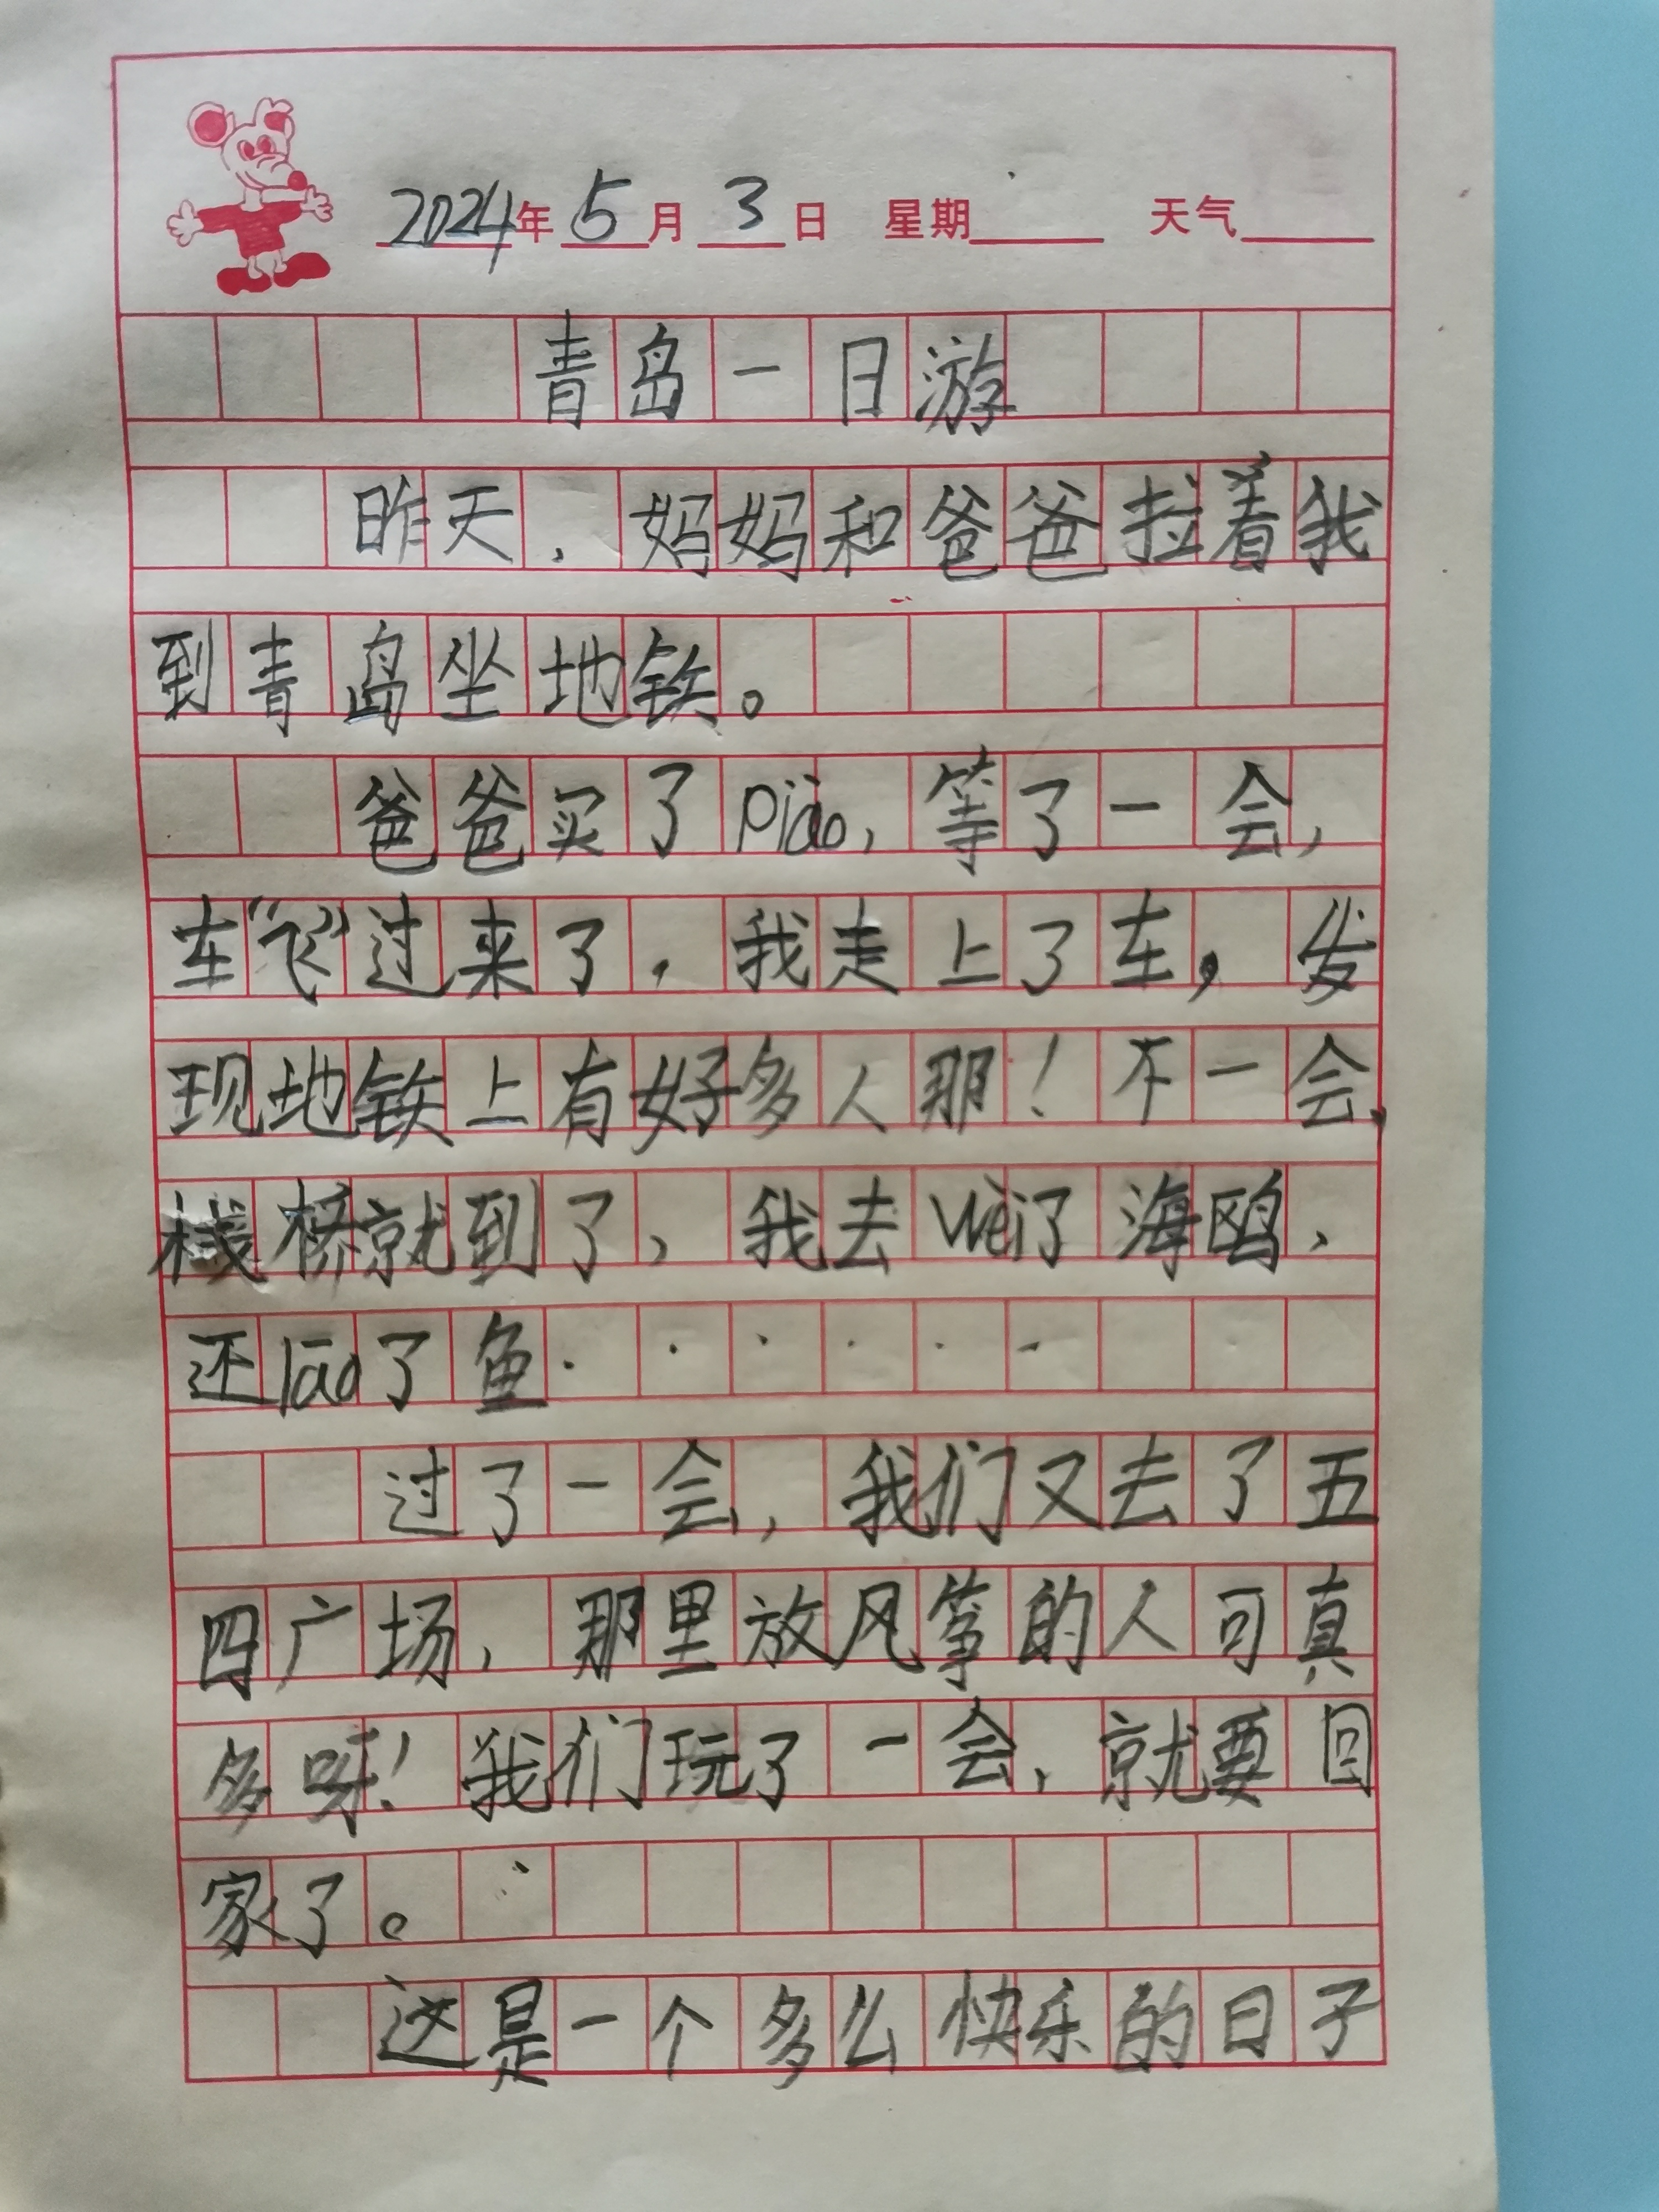 2024年5月3日 星期 天气
青岛一日游
昨天，妈妈和爸爸拉着我
到青岛坐地铁。
爸爸买了piào，等了一会，
车“飞”过来了，我走上了车，发
现地铁上有好多人那！不一会，
栈桥就到了，我去wèi了海鸥，
还lāo了鱼······
过了一会，我们又去了五
四广场，那里放风筝的人可真
多呀！我们玩了一会，就要回
家了。
这是一个多么快乐的日子